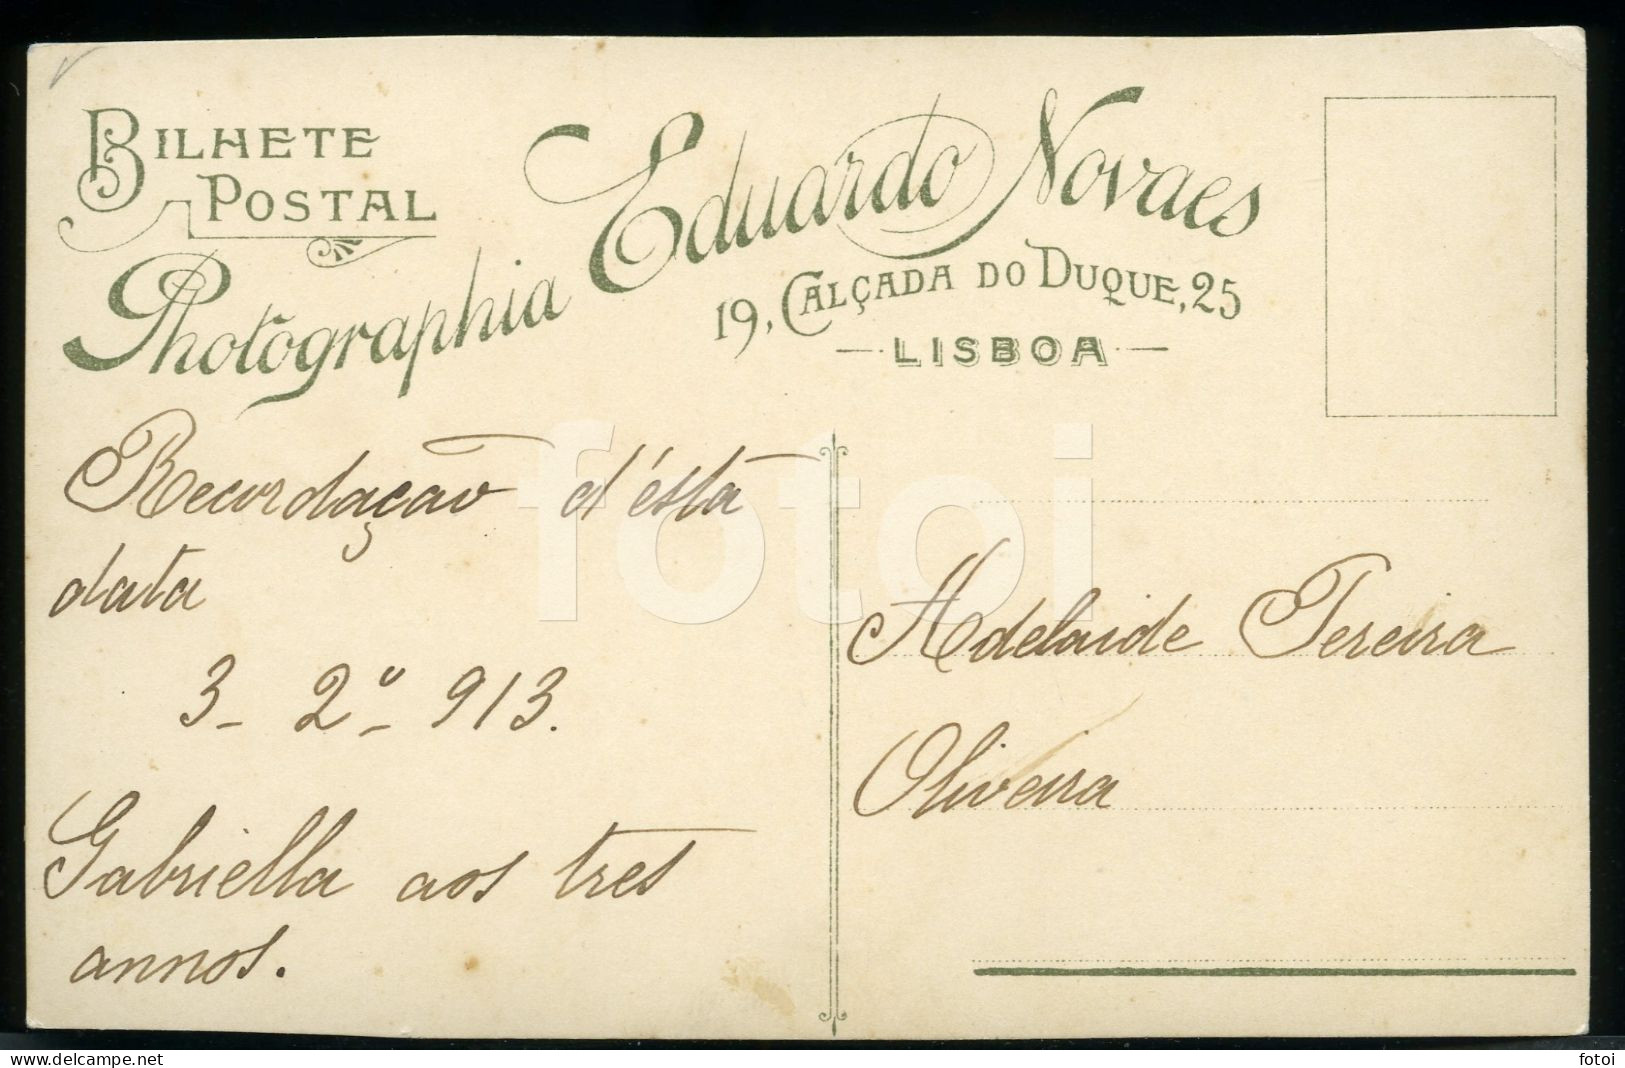 BILHETE
POSTAL
Photographia Eduardo Novaes
19, CALÇADA DO DUQUE, 25
LISBOA
Recordação d'ésta
data
3 - 2º - 913.
Gabriella aos tres
annos.
Adelaide Pereira
Oliveira
fotoi
www.delcampe.net
fotoi